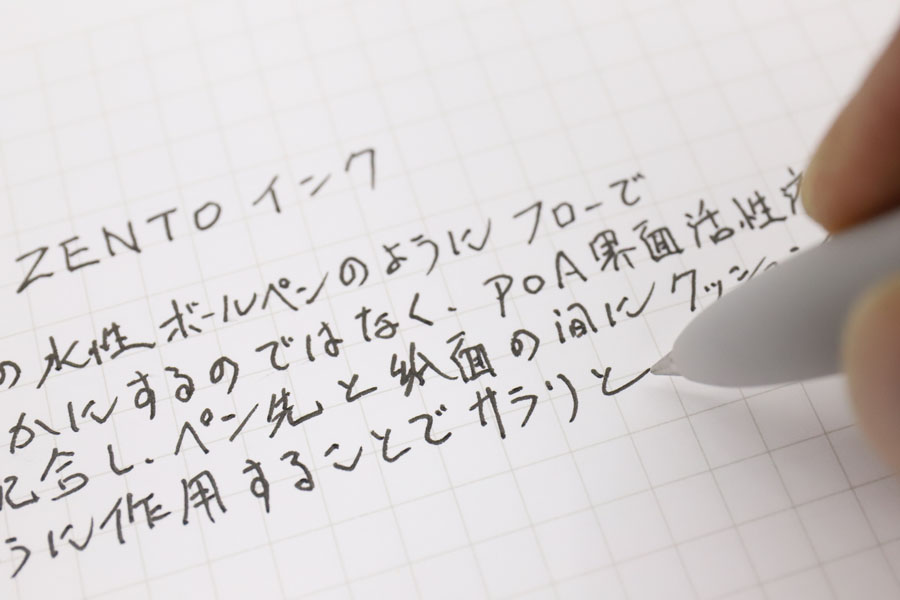 ZENTO インク
の水性ボールペンのようにフローで
かにするのではなく、POA界面活性
配合し、ペン先と紙面の間にクッション
うに作用することでサラリと